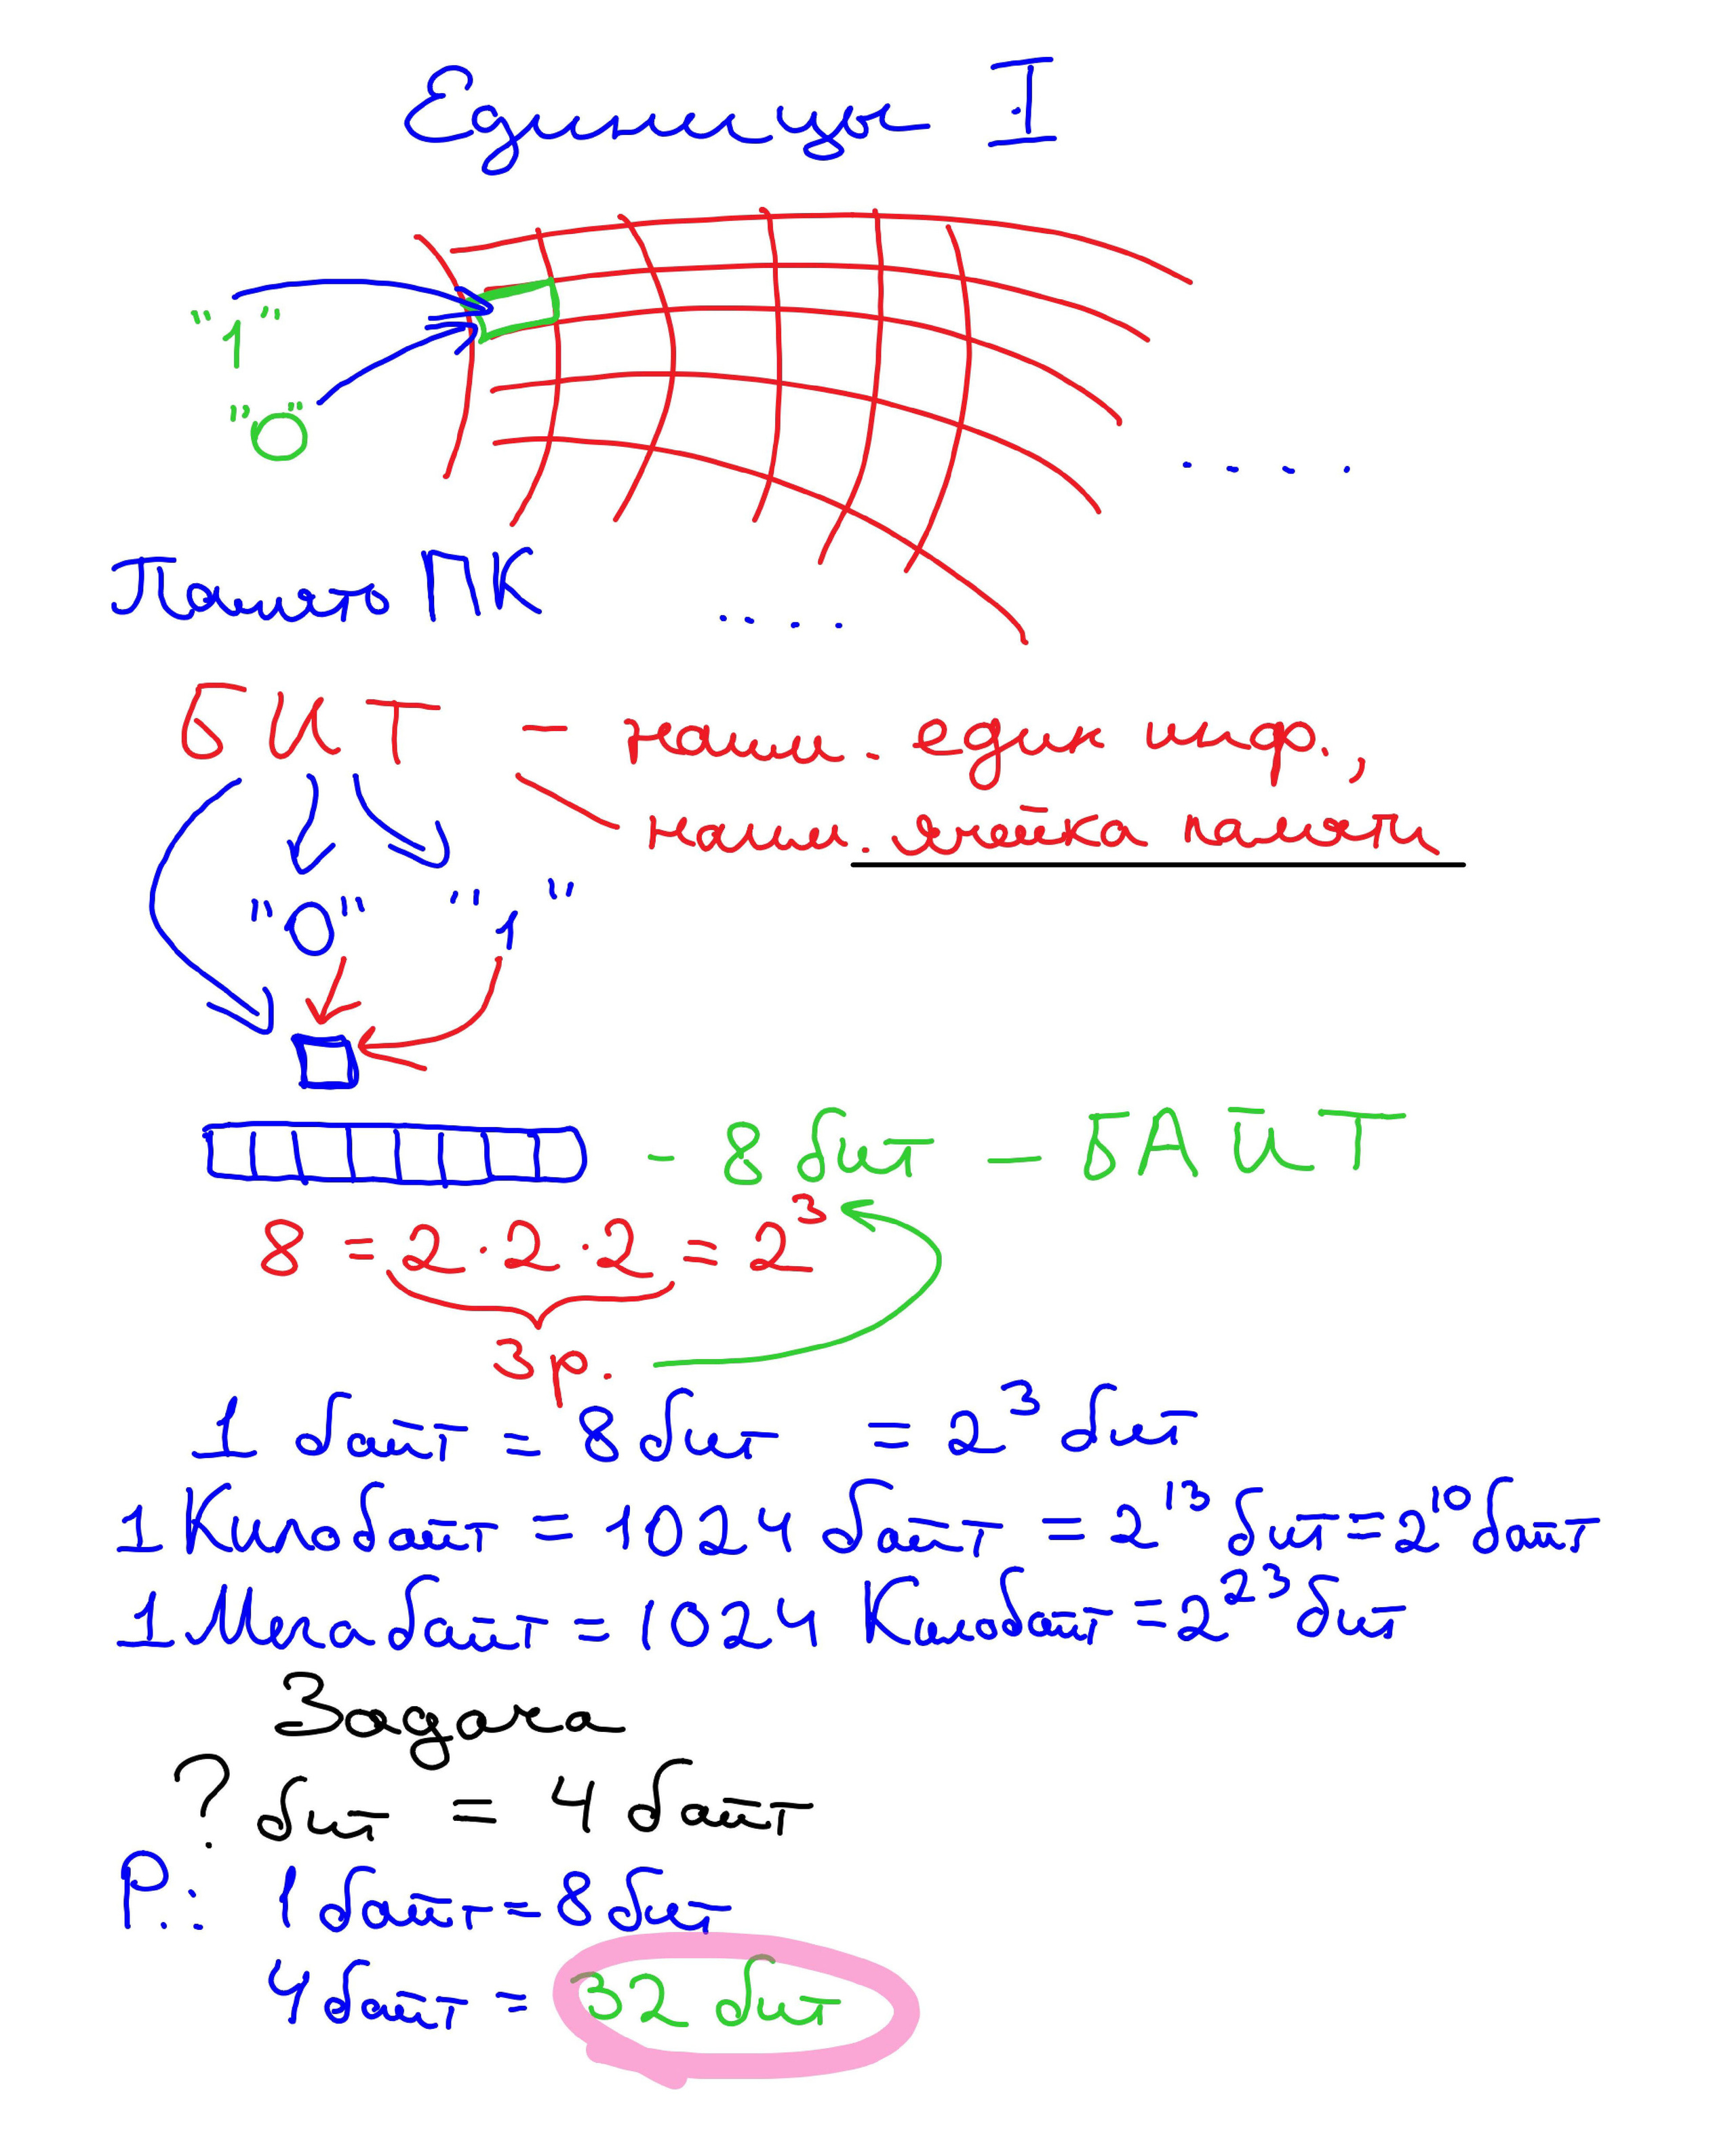 Единицы I
"1"
"0"
. . . .
Память ПК
. . . .
БИТ - наим. един инф.,
наим. ячейка памяти
"0" "1"
- 8 бит - БАЙТ
8 = 2 · 2 · 2 = 2³
3 р.
1 байт = 8 бит = 2³ бит
1 Килобайт = 1024 байт = 2¹³ бит = 2¹⁰ байт
1 Мегабайт = 1024 Килобайт = 2²³ бит
Задача
? бит = 4 байт
Р.: 1 байт = 8 бит
4 байт = 32 бит